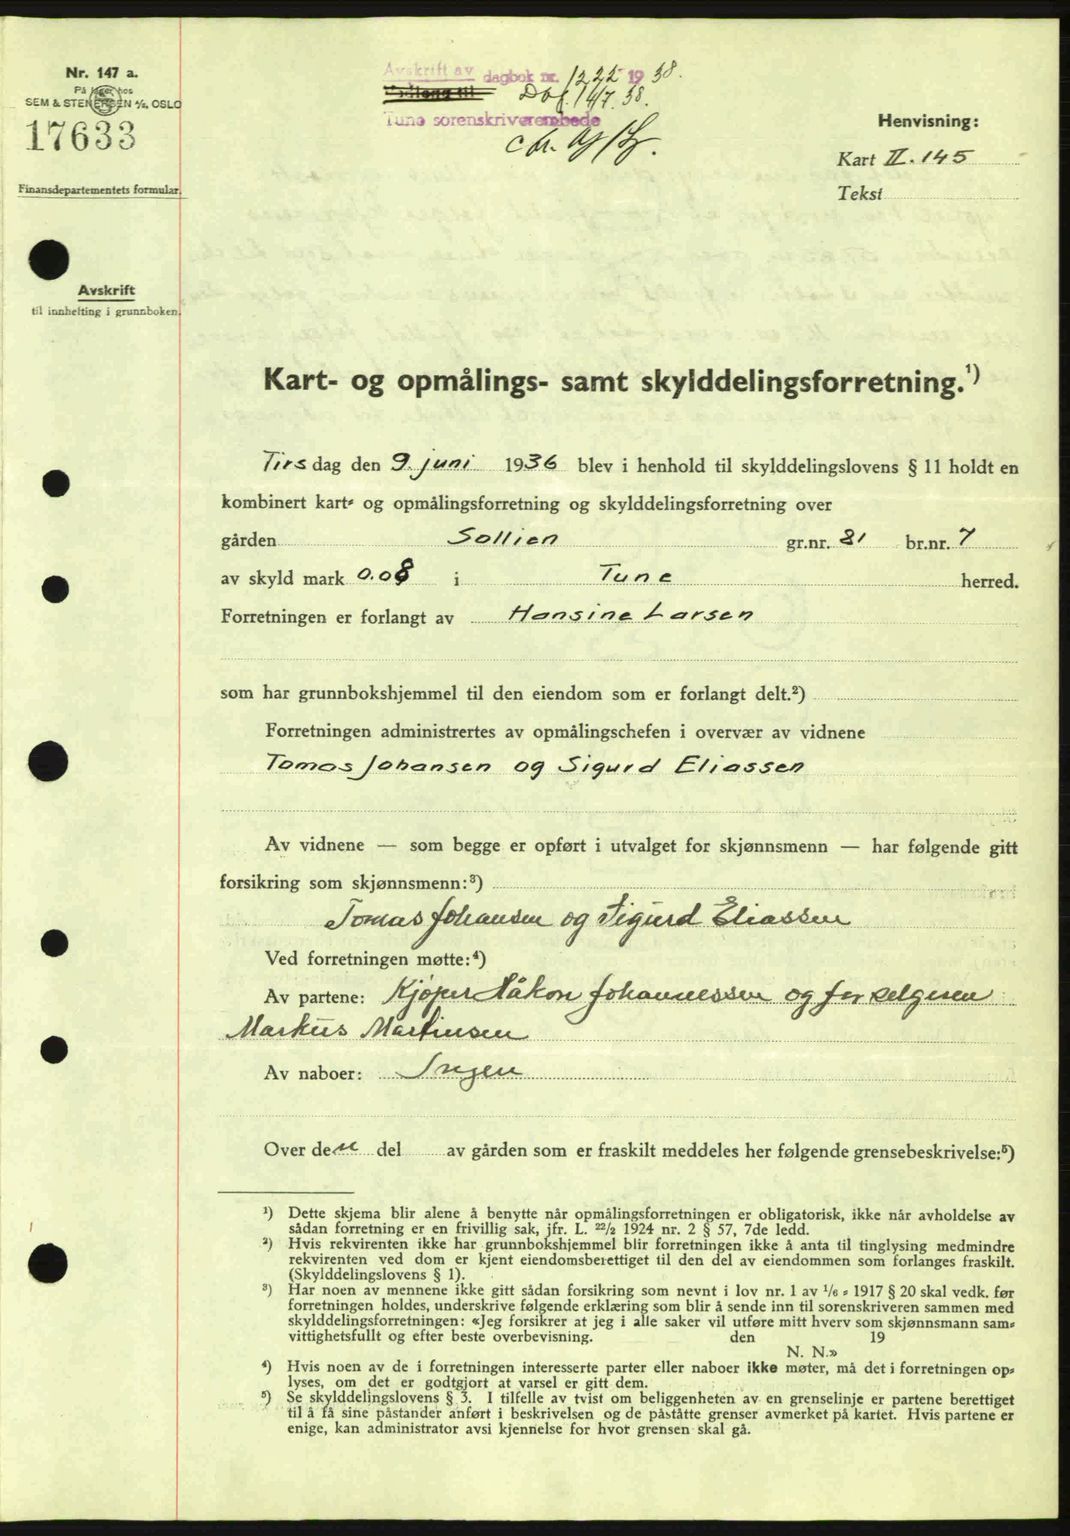 Nr. 147 a.
På lager hos
SEM & STENERSEN A/S, OSLO
17633
Finansdepartementets formular.
Avskrift
til innhefting i grunnboken.
Avskrift av dagbok nr. 1222 1938.
Vedlegg til Dbf. 14/7.38.
Tune sorenskriverembede
Henvisning:
Kart II. 145
Tekst
Kart- og opmålings- samt skylddelingsforretning.¹)
Tirsdag den 9. juni 1936 blev i henhold til skylddelingslovens § 11 holdt en
kombinert kart- og opmålingsforretning og skylddelingsforretning over
gården Sollien gr.nr. 81 br.nr. 7
av skyld mark 0.08 i Tune herred.
Forretningen er forlangt av Hansine Larsen
som har grunnbokshjemmel til den eiendom som er forlangt delt.²)
Forretningen administrertes av opmålingschefen i overvær av vidnene
Tomas Johansen og Sigurd Eliassen
Av vidnene — som begge er opført i utvalget for skjønnsmenn — har følgende gitt
forsikring som skjønnsmenn:³)
Tomas Johansen og Sigurd Eliassen
Ved forretningen møtte:⁴)
Av partene: Kjøper Håkon Johannessen og for selgeren
Markus Martinsen
Av naboer: Ingen
Over den del av gården som er fraskilt meddeles her følgende grensebeskrivelse:⁵)
¹) Dette skjema blir alene å benytte når opmålingsforretningen er obligatorisk, ikke når avholdelse av
sådan forretning er en frivillig sak, jfr. L. ²²/₂ 1924 nr. 2 § 57, 7de ledd.
²) Hvis rekvirenten ikke har grunnbokshjemmel blir forretningen ikke å anta til tinglysing medmindre
rekvirenten ved dom er kjent eiendomsberettiget til den del av eiendommen som forlanges fraskilt.
(Skylddelingslovens § 1).
³) Har noen av mennene ikke gitt sådan forsikring som nevnt i lov nr. 1 av ¹/₆ - 1917 § 20 skal vedk. før
forretningen holdes, underskrive følgende erklæring som blir å sende inn til sorenskriveren sammen med
skylddelingsforretningen: «Jeg forsikrer at jeg i alle saker vil utføre mitt hverv som skjønnsmann sam-
vittighetsfullt og efter beste overbevisning. den 19
N. N.»
⁴) Hvis noen av de i forretningen interesserte parter eller naboer ikke møter, må det i forretningen op-
lyses, om det er godtgjort at varsel er gitt dem.
⁵) Se skylddelingslovens § 3. I tilfelle av tvist om beliggenheten av en grenselinje er partene berettiget
til å få sine påstander anført i beskrivelsen og de påståtte grenser avmerket på kartet. Hvis partene er
enige, kan administrator avsi kjennelse for hvor grensen skal gå.